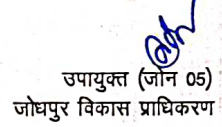 उपायुक्त (जोन 05)
जोधपुर विकास प्राधिकरण